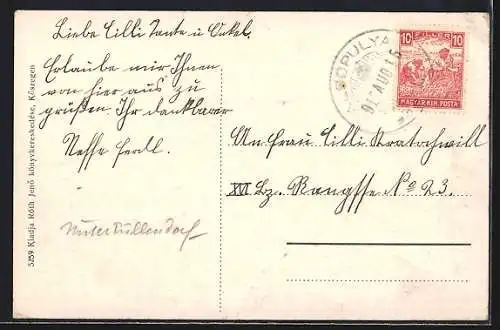 Liebe Cilli Tante u Onkel.
Erlaube mir Ihnen
von hier aus zu
grüßen. Ihr dankbarer
Neffe Ferdl.
Unterpullendorf
5259 Kiadja Róth Jenő könyvkereskedése, Kőszegen
10 FILLÉR 10
MAGYAR KIR. POSTA
An Frau Cilli Kratochwill
XVI Bz. No 23.